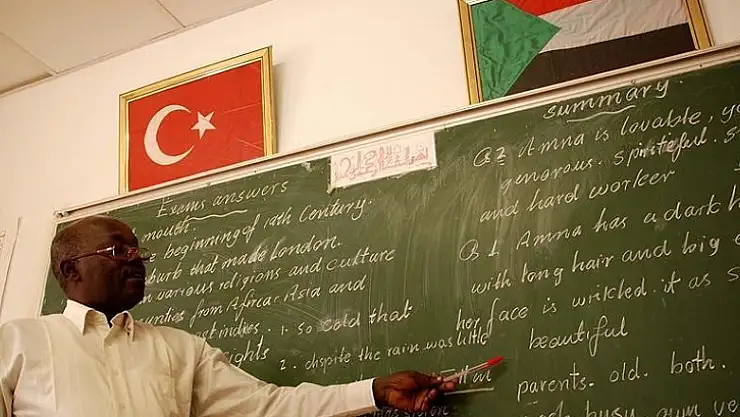 Exams answers
mouth.
e beginning of 19th Century.
burb that made London.
n various religions and culture
unities from Africa. Asia and
st indies.
ghts
1 - so cold that
2 . dispite the rain was little
summary.
Q 2 Amna is lovable, yo
genorous. spriteful. s
and hard worker
Q 1 Amna has a dark h
with long hair and big e
her face is wricked it as s
beautiful
parents. old. both.
busy gum ve